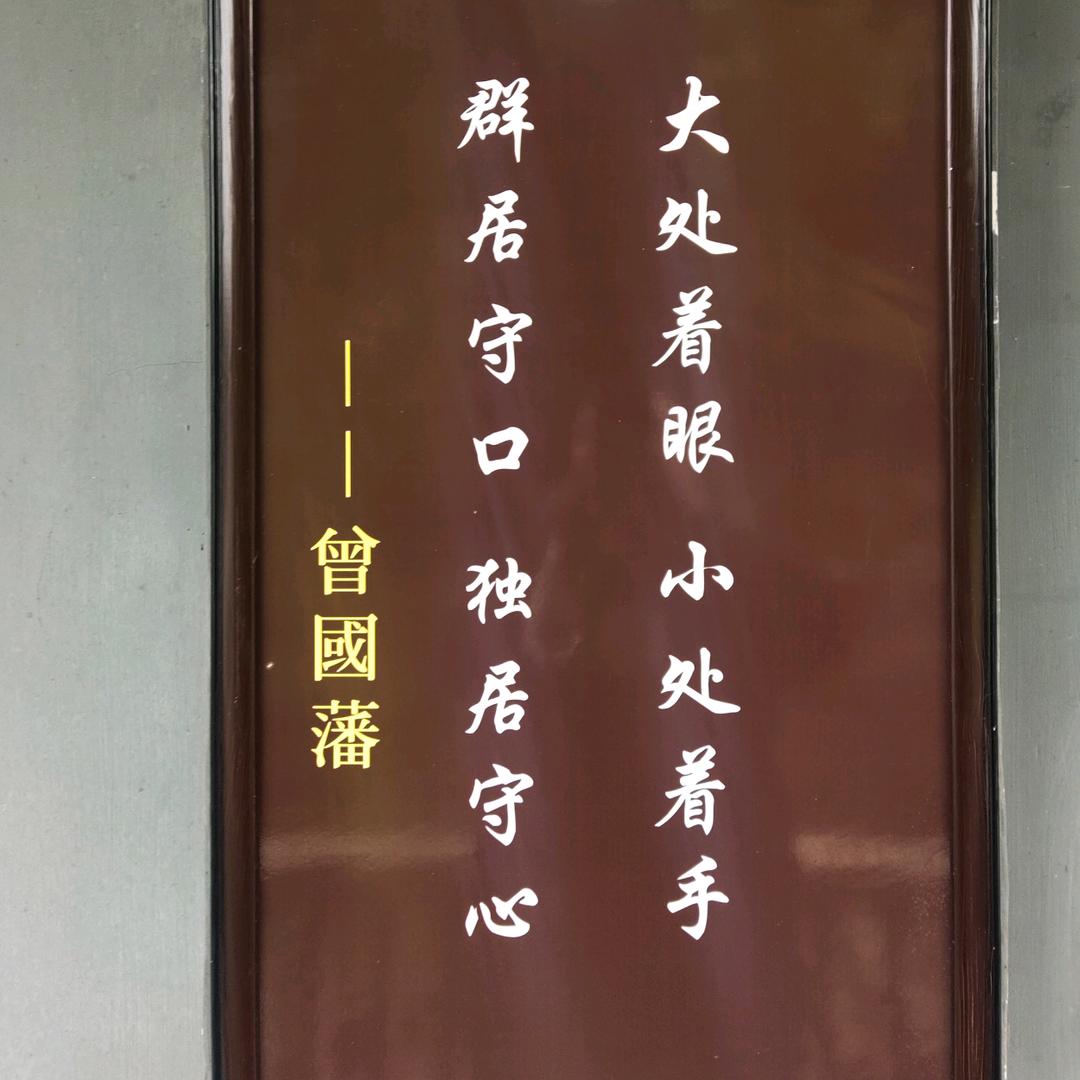 大处着眼 小处着手
群居守口 独居守心
——曾國藩